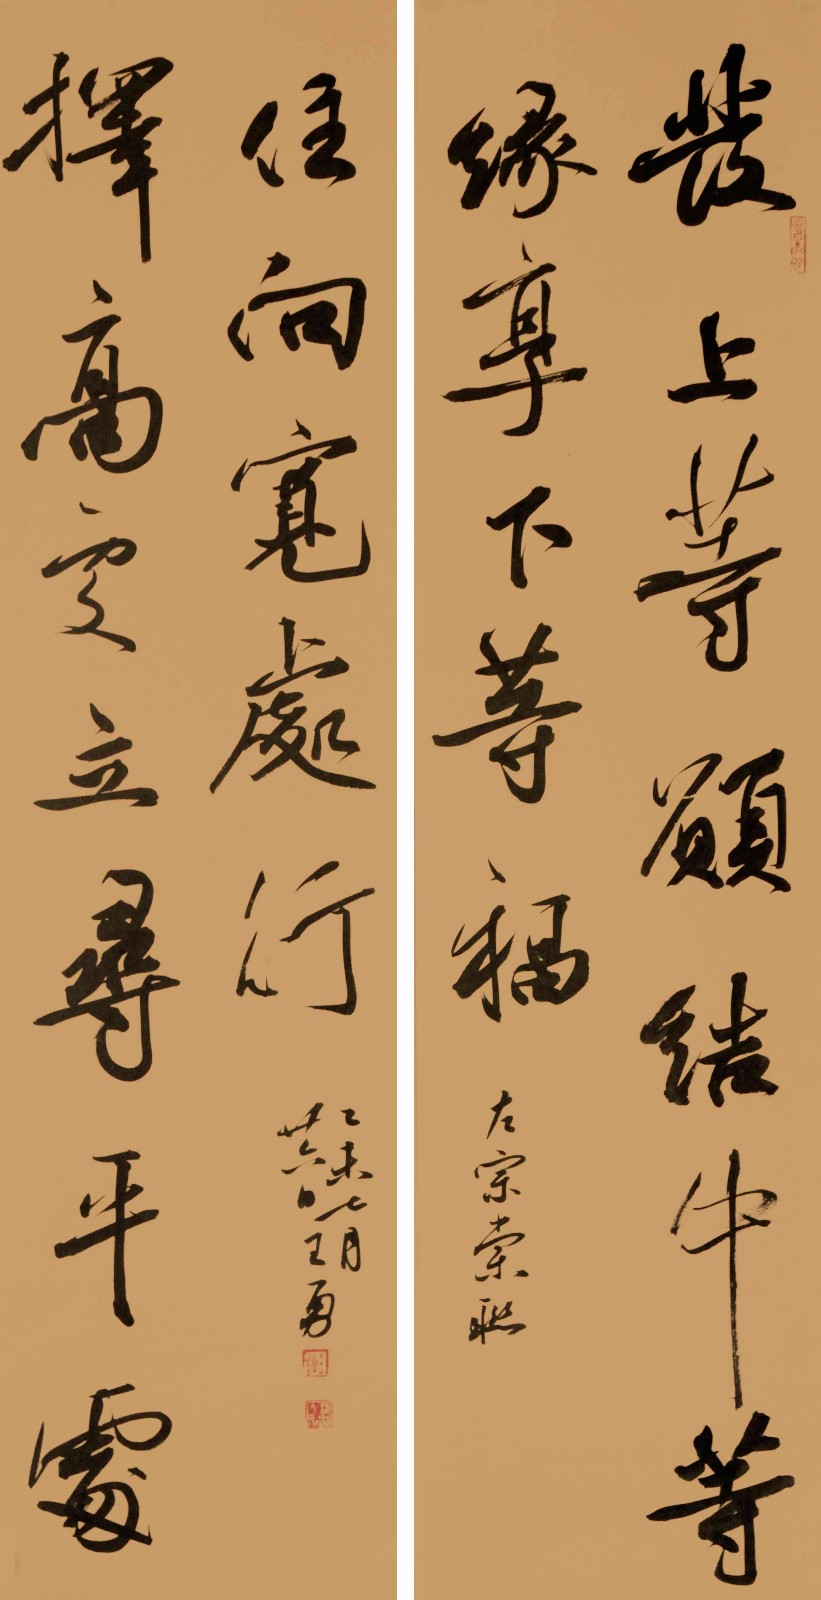 發上等願結中等
緣享下等福
左宗棠聯
擇高處立尋平處
住向寬處行
乙未七月
廿六日王勇